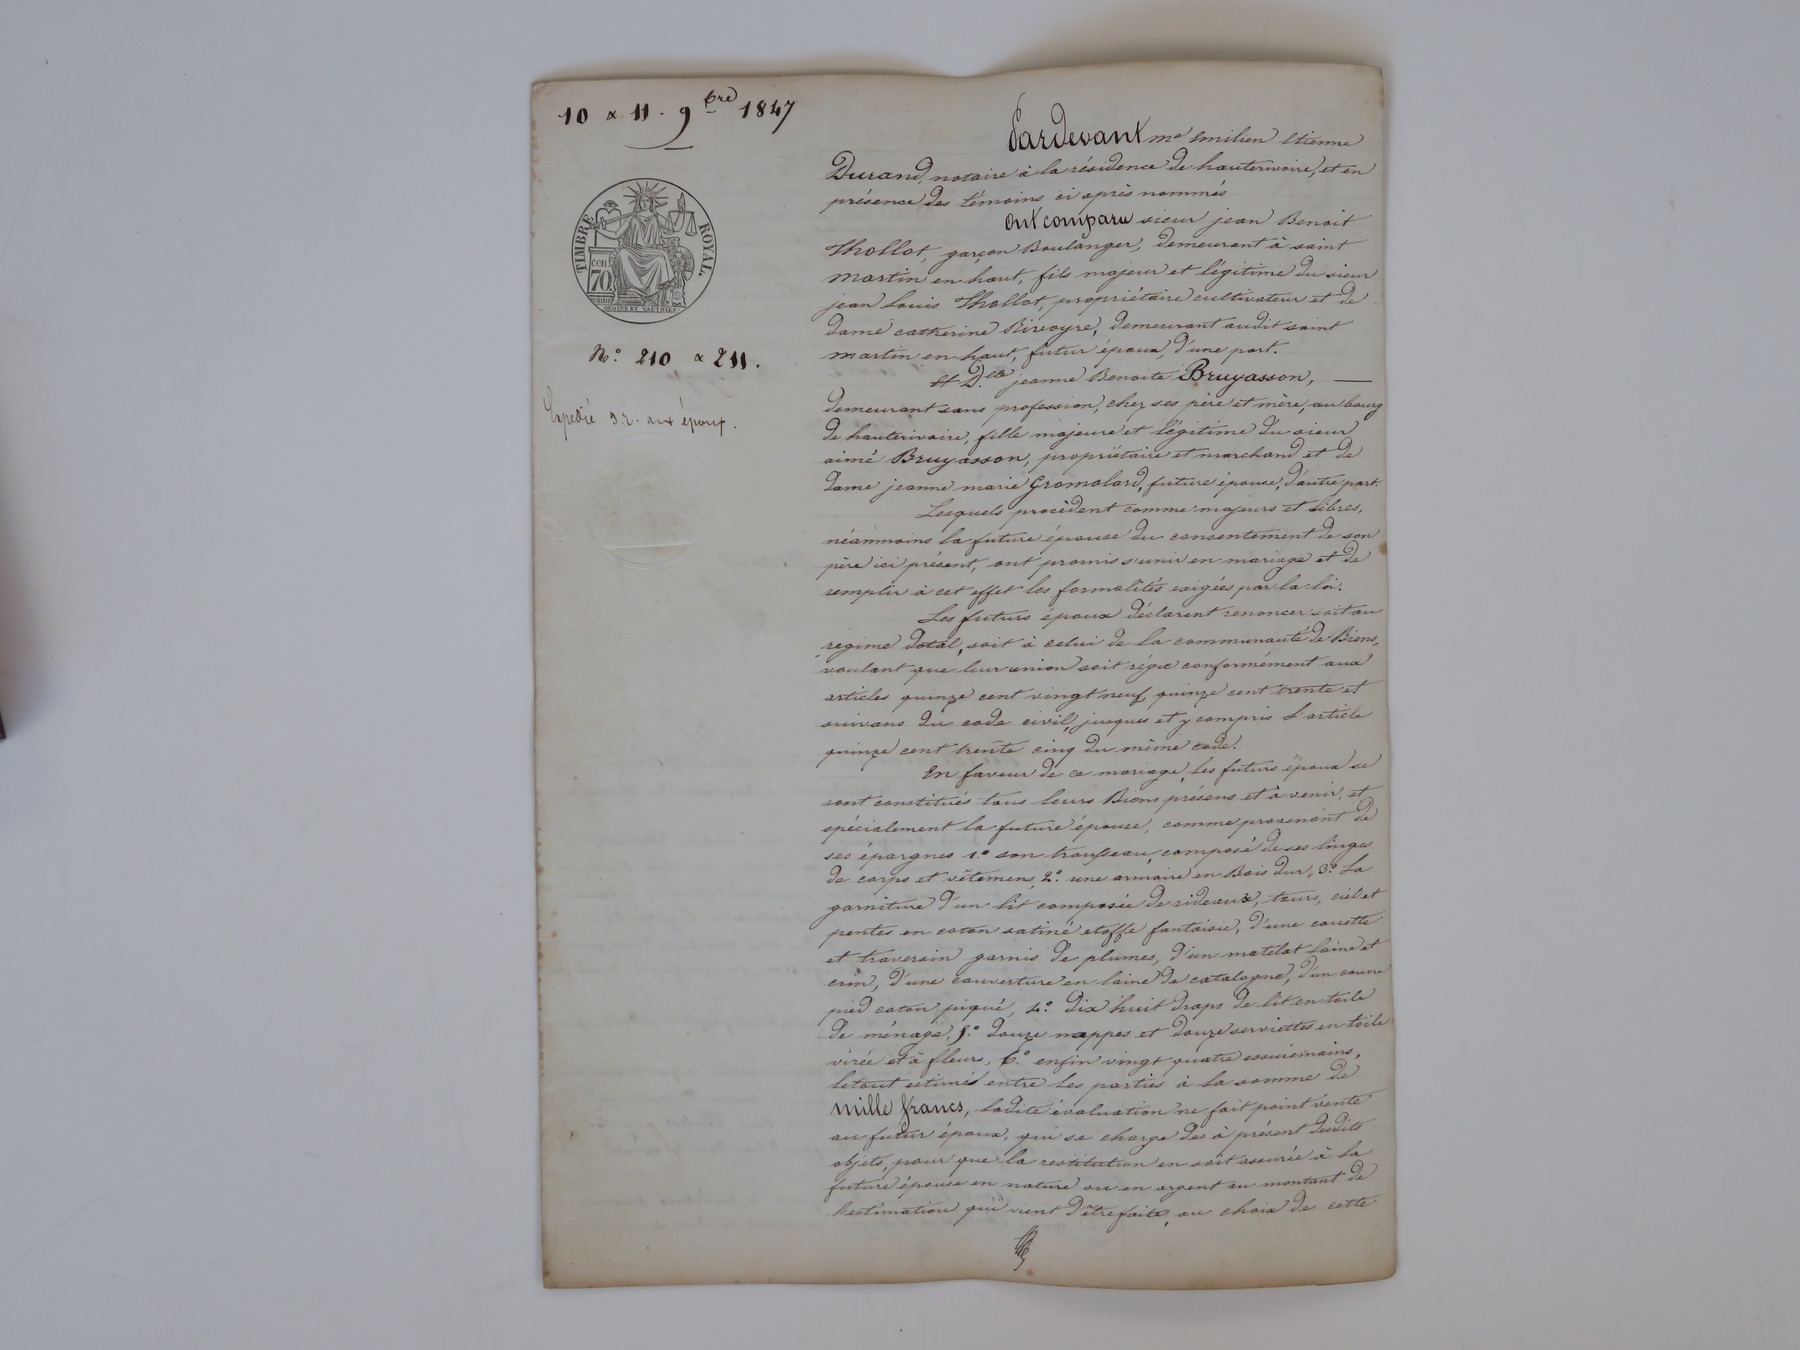 10 & 11. 9bre 1847
TIMBRE ROYAL.
cen.
70
N.° 210 & 211.
Expédié 3 r. aux époux.
Pardevant me Emilien Etienne
Durand, notaire à la résidence de hauterivoire, et en
présence des témoins ci après nommés
Ont comparu sieur jean Benoit
Thollot, garçon Boulanger, demeurant à saint
martin en haut, fils majeur et légitime du sieur
jean Louis Thollot, propriétaire cultivateur et de
dame catherine Rivoyre, demeurant audit saint
martin en haut, futur époux, d'une part.
Et D.lle jeanne Benoite Bruyasson, —
demeurant sans profession, chez ses père et mère, au bourg
de hauterivoire, fille majeure et légitime du sieur
aimé Bruyasson, propriétaire et marchand et de
dame jeanne marie Gromolard, future épouse, d'autre part.
Lesquels procèdent comme majeurs et libres,
néanmoins la future épouse du consentement de son
père ici présent, ont promis s'unir en mariage et de
remplir à cet effet les formalités exigées par la loi.
Les futurs époux déclarent renoncer soit au
regime dotal, soit à celui de la communauté de Biens,
voulant que leur union soit régie conformément aux
articles quinze cent vingt neuf, quinze cent trente et
suivans du code civil, jusques et y compris l'article
quinze cent trente cinq du même code.
En faveur de ce mariage, les futurs époux se
sont constitués tous leurs Biens présens et à venir, et
spécialement la future épouse, comme provenant de
ses épargnes 1.° son trousseau, composé de ses linges
de corps et vêtemens, 2.° une armoire en Bois dur, 3.° la
garniture d'un lit composée de rideaux, tours, ciel et
pentes en coton satiné etoffe fantaisie, d'une couette
et traversin garnis de plumes, d'un matelat laine et
crin, d'une couverture en laine de catalogne, d'un couvre
pied coton piqué, 4.° dix huit draps de lit en toile
de ménage, 5.° douze nappes et douze serviettes en toile
virée et à fleurs, 6.° enfin vingt quatre essuiemains,
letout estimé entre les parties à la somme de
mille francs, ladite évaluation ne fait point vente
au futur époux, qui se charge dès à présent desdits
objets, pour que la restitution en soit assurée à la
future épouse en nature ou en argent au montant de
l'estimation qui vient d'être faite, au choix de cette